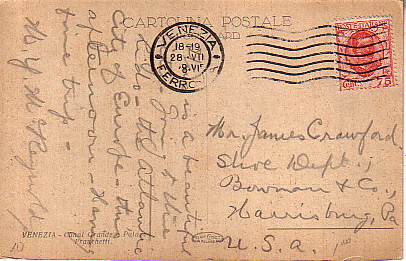 CARTOLINA POSTALE
CARD
VENEZIA
18-19
28·VII
FERROVIA
POSTE ITALIANE
75
is a beautiful
Lido - the Atlantic
City of Europe - this
afternoon - Having
fine trip -
M. Y. M. Reynolds
Mr. James Crawford,
Shoe Dept.,
Bowman & Co.,
Harrisburg, Pa
U.S.A.
VENEZIA - Canal Grande e Palazzo
Franchetti.